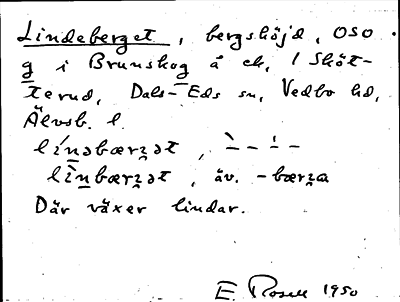 Lindeberget, bergshöjd, OSO
g i Brunskog å ek. 1 Sköt-
terud, Dals-Eds sn, Vedbo hd,
Älvsb. l.
li´nəbærʒət, `– – ´ –
lìnbærʒət, äv. -bærʒa
Där växer lindar.
E. Rosell 1950